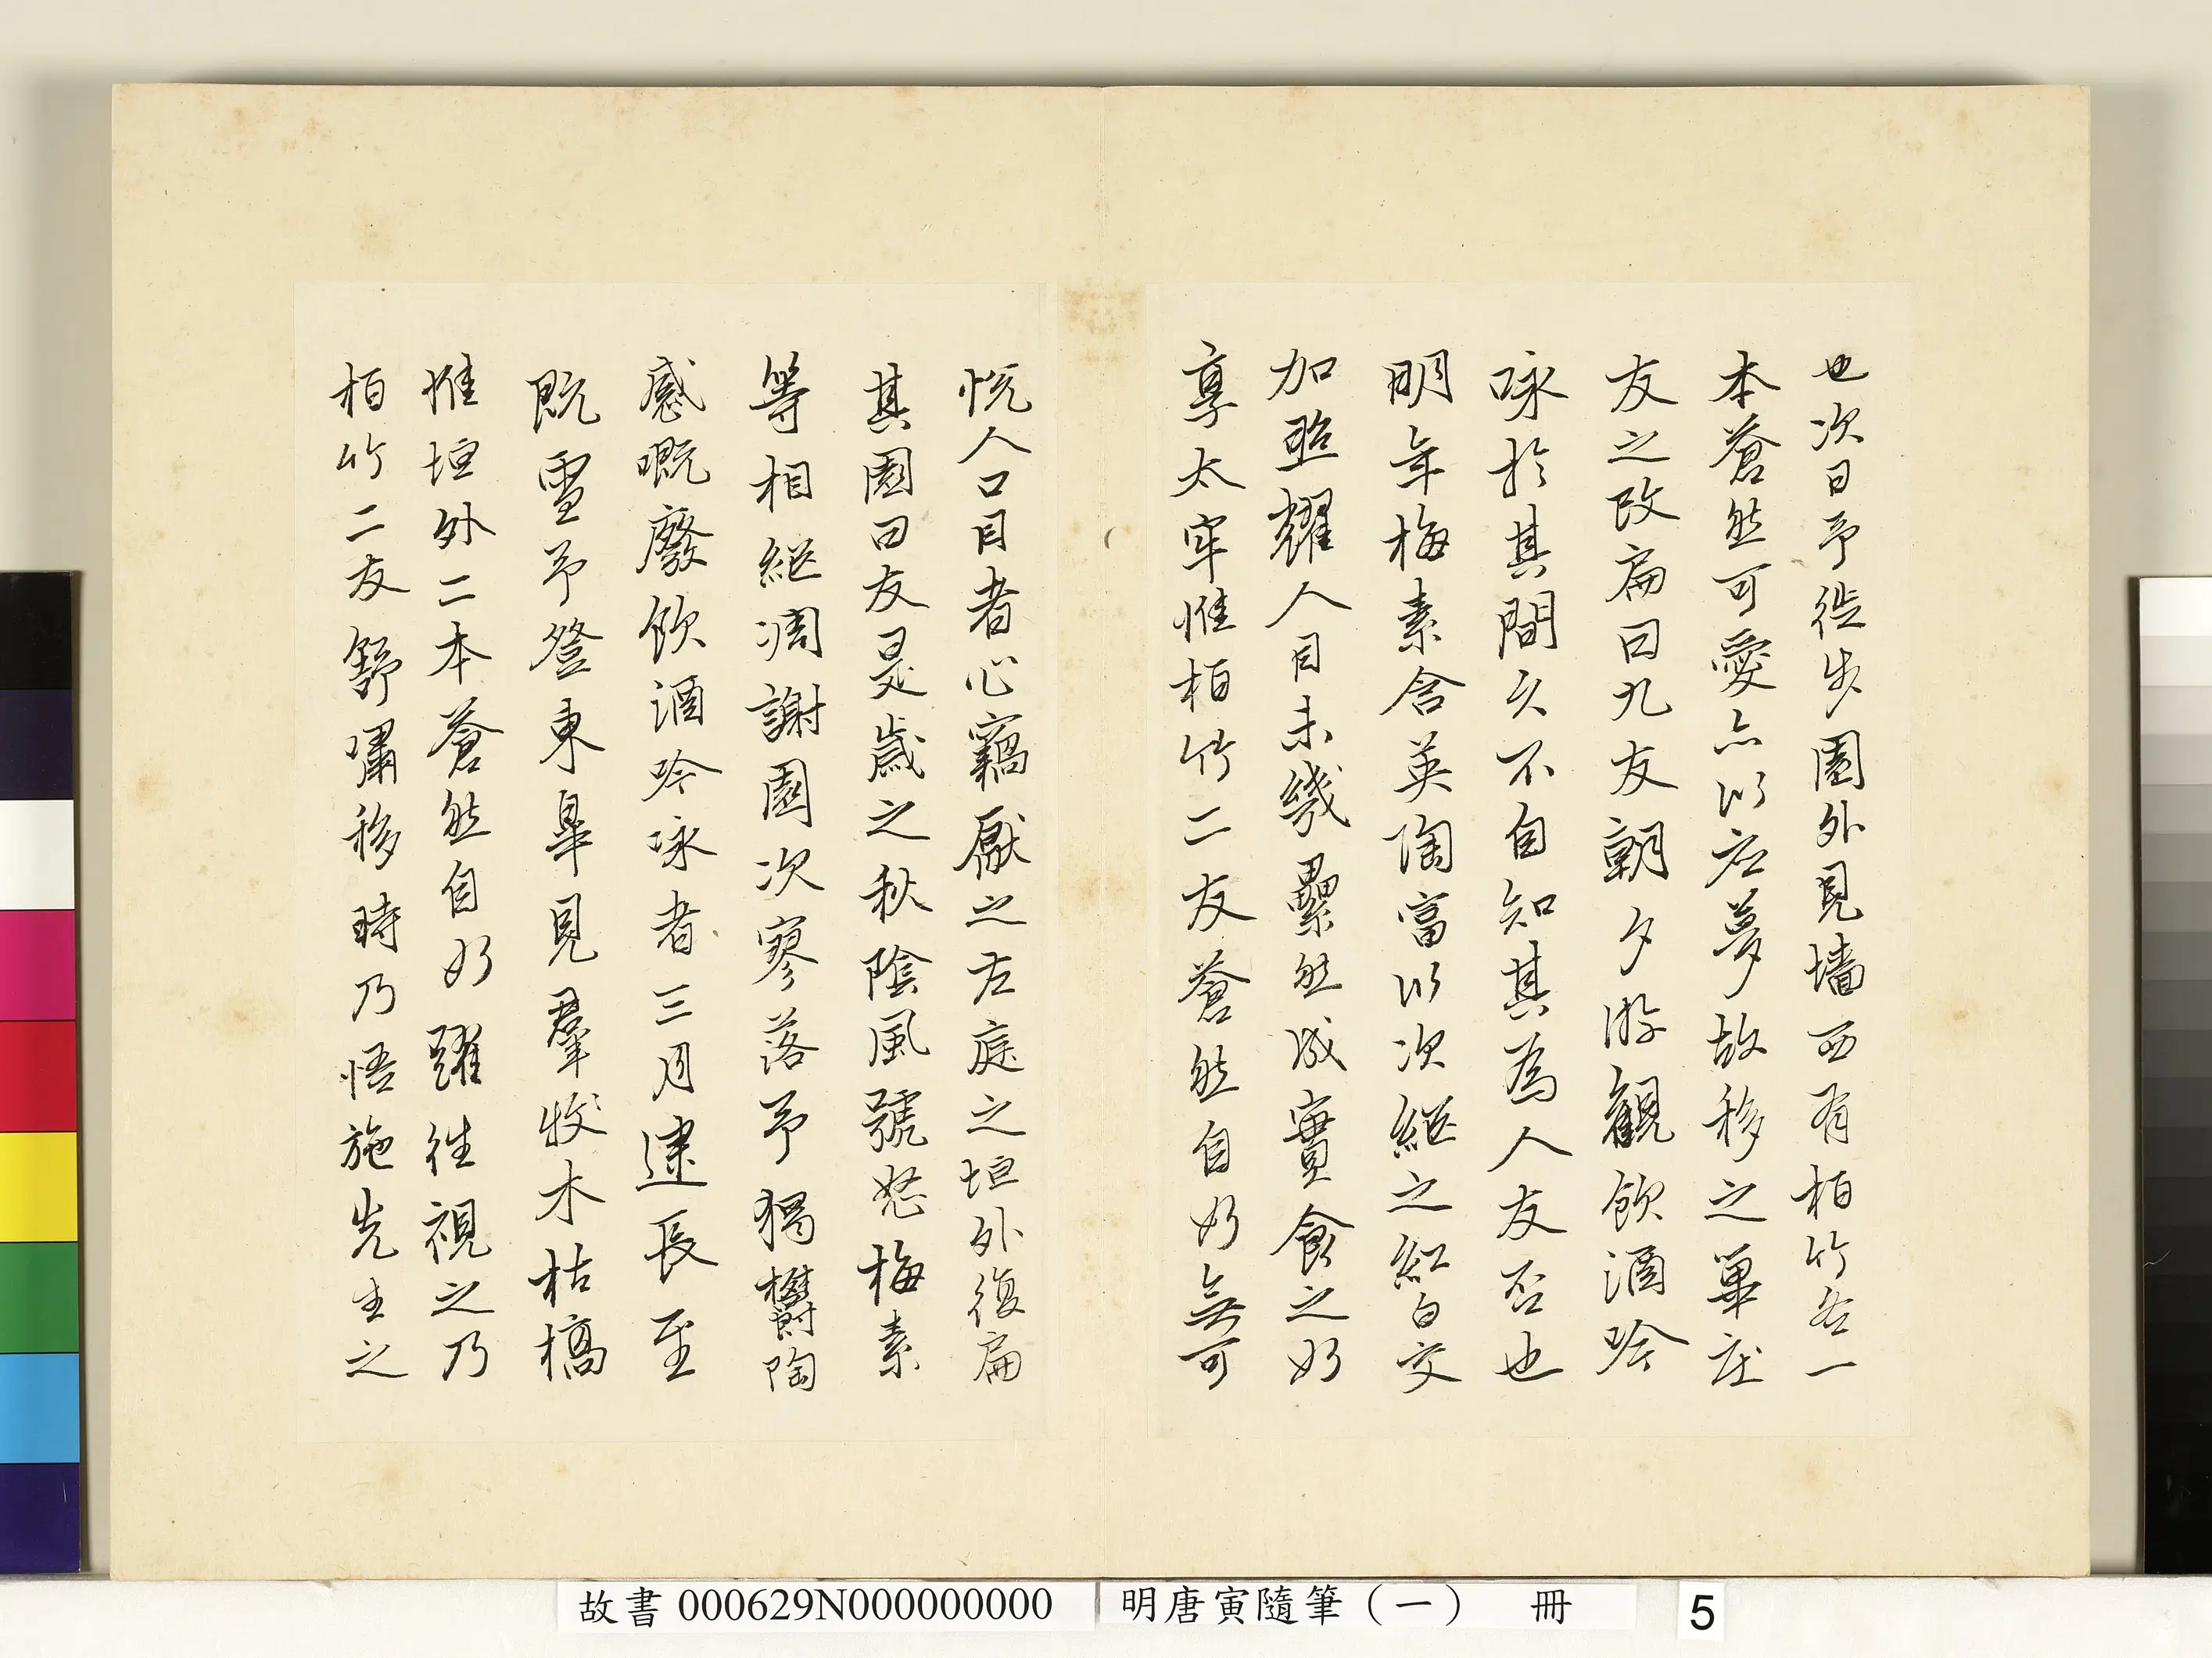 也次日予徙步園外見墻西有柏竹各一
本蒼然可愛亦以應夢故移之單庄
友之改扁曰九友朝夕游觀飲酒吟
咏於其間久不自知其為人友否也
明年梅素含英陶富以次继之紅白交
加照耀人目未幾纍然成實食之如
享太牢惟柏竹二友蒼然自如無可
悦人口目者心竊厭之左庭之垣外復扁
其園曰友是歲之秋陰風號怒梅素
等相继凋謝園次寥落予獨欝陶
感嘅廢飲酒吟咏者三月逮長至
既雪予登東皐見羣牧木枯槁
惟垣外二本蒼然自如躍往視之乃
柏竹二友舒嘯移時乃悟施先生之
故書 000629N000000000 明唐寅隨筆（一） 冊 5